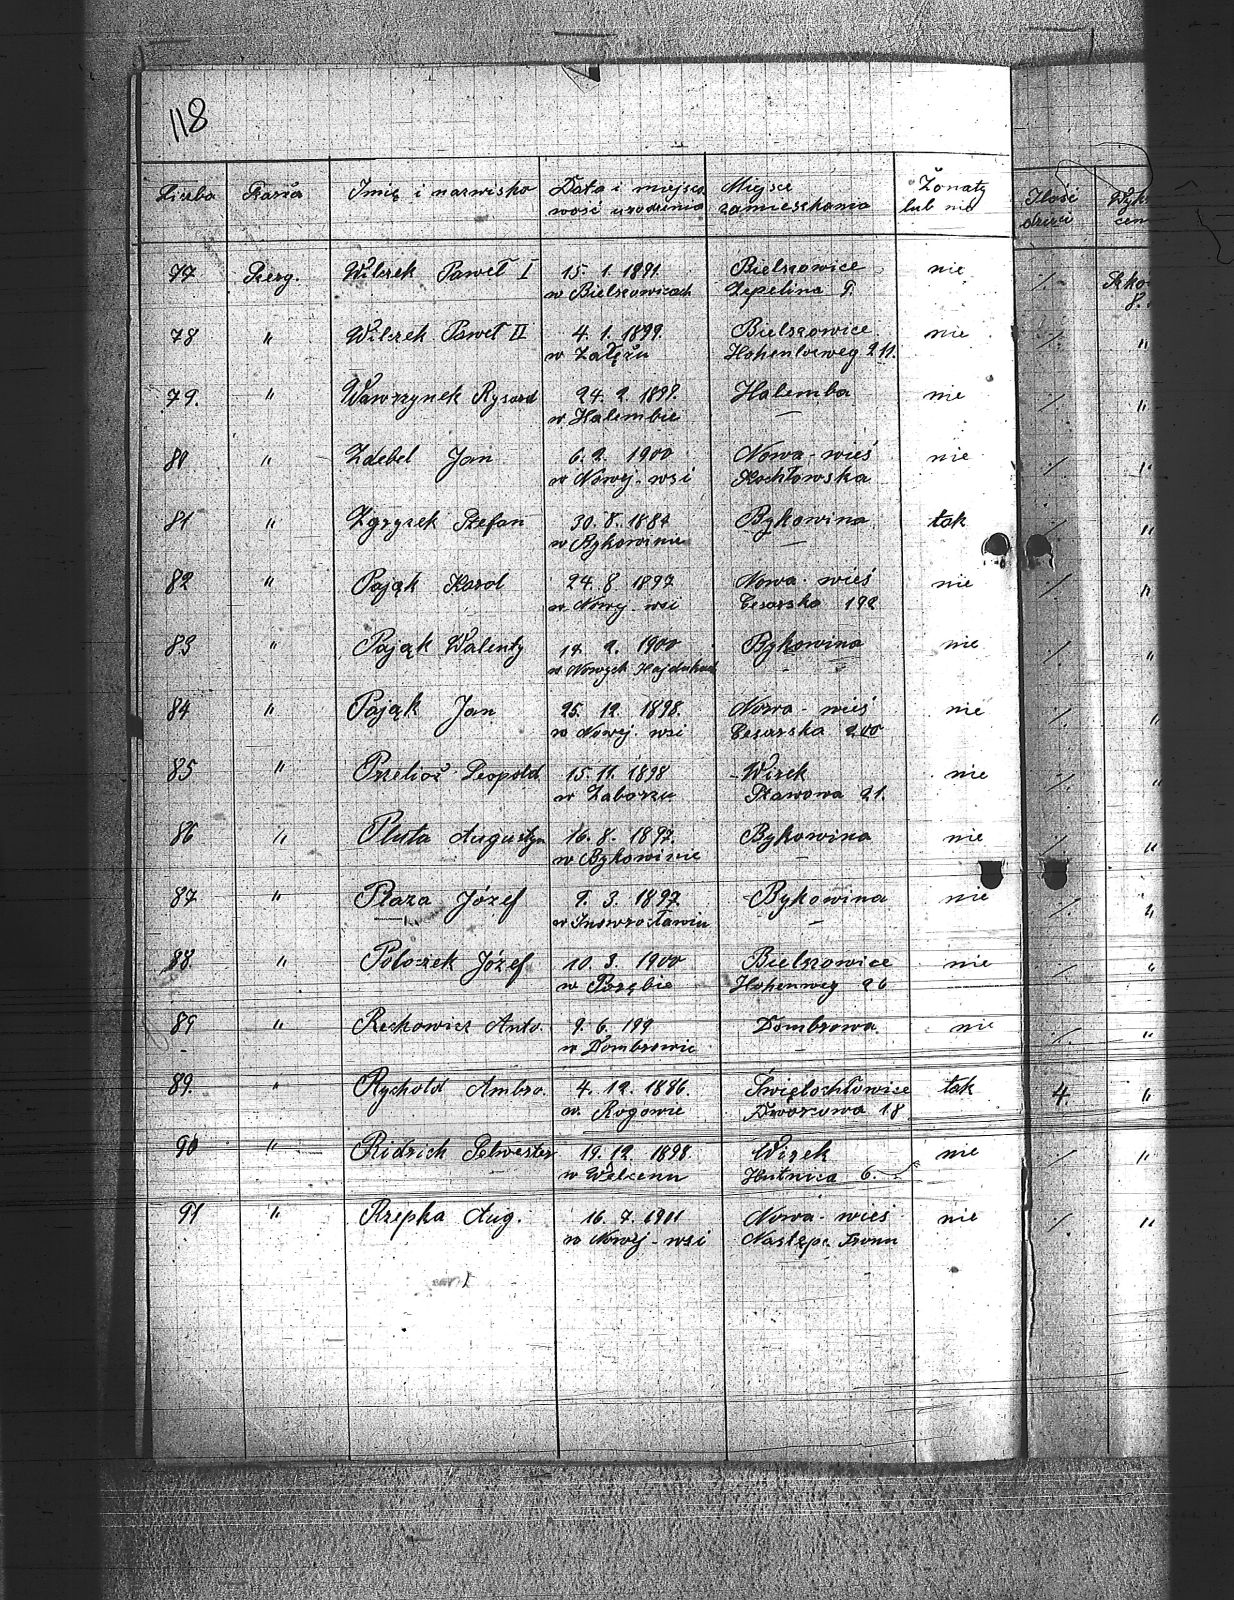 118
Liczba Szarża Imię i nazwisko Data i miejsco- Miejsce Żonaty Ilość
wość urodzenia zamieszkania lub nie dzieci
77 Szerg. Wilczek Paweł I 15. 1. 1891 Bielszowice nie ·/·
w Bielszowicach Zepelina 9.
78 " Wilczek Paweł II 4. 1. 1899. Bielszowice nie ·/· "
w Załężu Hohenloeweg 211.
79. " Wawrzynek Rysard 24. 2. 1899. Halemba nie ·/· "
w Halembie —
80 " Zdebel Jan 6. 2. 1900 Nowa-wieś nie ·/· "
w Nowej-wsi Kochłowska
81 " Zgrysek Stefan 30. 8. 1884 Bykowina tak ·/· "
w Bykowinie —
82 " Pająk Karol 24. 8. 1897 Nowa-wieś nie ·/· "
w Nowej-wsi Cesarska 192
83 " Pająk Walenty 14. 2. 1900 Bykowina nie ·/· "
w Nowych Hajdukach
84 " Pająk Jan 25. 12. 1898. Nowa-wieś nie ·/· "
w Nowej-wsi Cesarska 200
85 " Leopold 15. 11. 1898 Wirek nie ·/· "
w Zaborzu Stawowa 21.
86 " Pluta Augustyn 16. 8. 1897. Bykowina nie ·/· "
w Bykowinie —
87 " Płaza Józef 9. 3. 1897 Bykowina nie ·/· "
w Inowrocławiu —
88 " Poloczek Józef 10. 3. 1900 Bielszowice nie ·/· "
w Porębie Hohenweg 26
89 " Reckowicz Anto. 9. 6. 199 Dombrowa nie ·/· "
w Dombrowie —
89. " Rychold Ambro. 4. 12. 1886. Świętochłowice tak 4. "
w Rogowie Dworcowa 18
90 " Ridrich Sylwester 19. 12. 1898. Wirek nie ·/· "
w Wełcenu Hutnica 6.
91 " Rzepka Aug. 16. 7. 1901 Nowa-wieś nie ·/· "
w Nowej-wsi Następc. Tronu